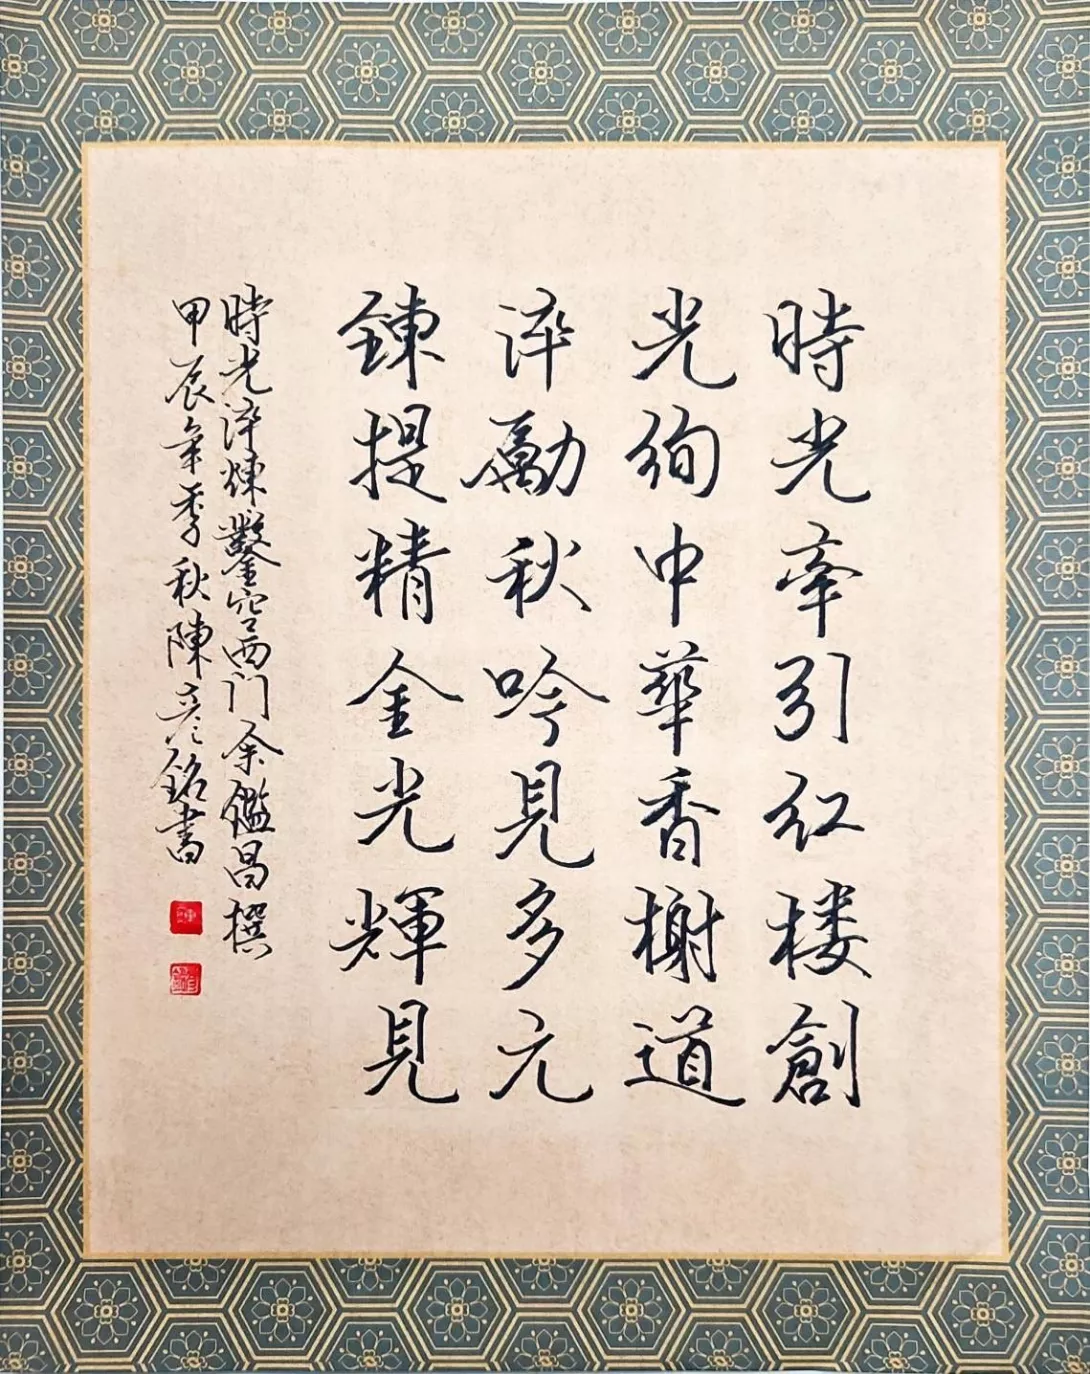 時光牽引红楼創
光絢中華香榭道
淬勵秋吟見多元
鍊提精金光輝見
時光淬煉鑿空西门余鑑昌撰
甲辰年季秋陳彦銘書